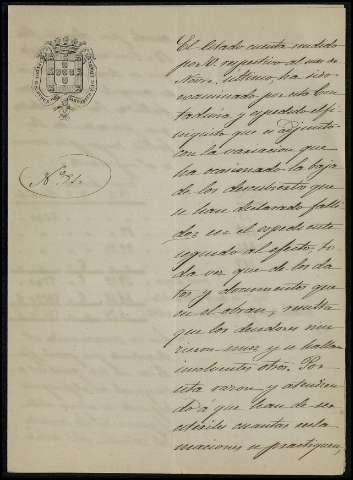 Nº 51.
El Estado cuenta rendido
por V. respectivo al mes de
último, ha sido
examinado por esta Con
taduría y expedido el fi
niquito que se adjunta
con la variación que
ha ocasionado la baja
de los descubiertos que
se han declarado falli
dos en el expediente
seguido al efecto, to
da vez que de los da
tos y documentos que
en él obran, resulta
que los deudores mu
rieron unos y se hallan
insolventes otros. Por
esta razon y atendien
do á que han de ser
estériles cuantas recla
maciones se practiquen,